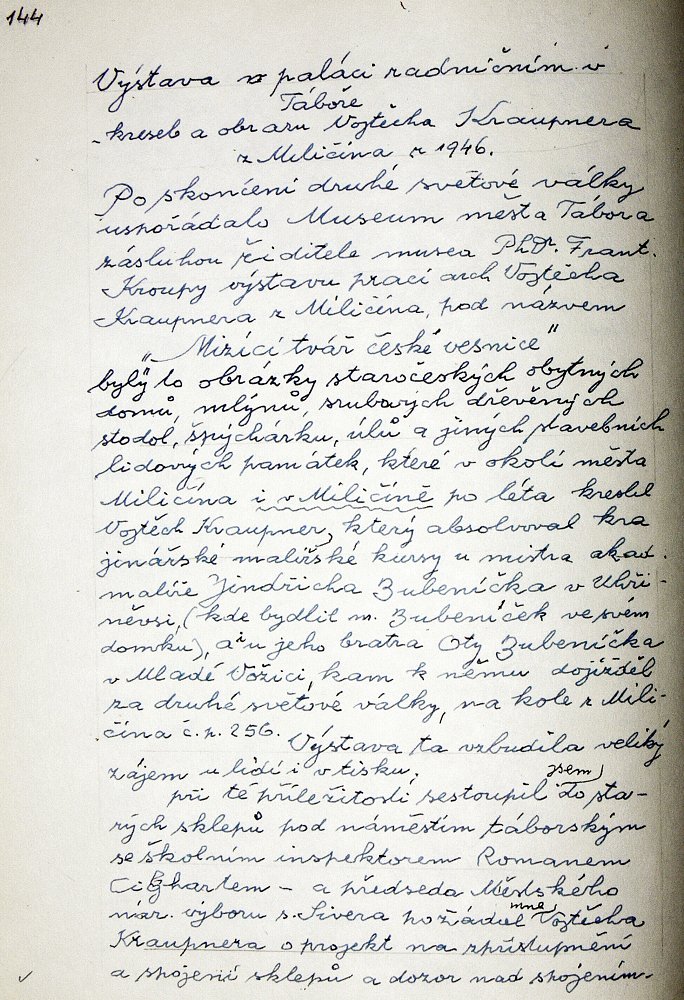 144
Výstava v paláci radničním v
Táboře
- kreseb a obrazu Vojtěcha Kraupnera
z Miličína r 1946.
Po skončení druhé světové války
uspořádalo Museum města Tábora
zásluhou ředitele musea PhDr. Frant.
Kroupy výstavu prací arch Vojtěcha
Kraupnera z Miličína, pod názvem
„Mizící tvář české vesnice"
byly to obrázky staročeských obytných
domů, mlýnů, srubových dřevěných
stodol, špýchárku, úlů a jiných stavebních
lidových památek, které v okolí města
Miličína i v Miličíně po léta kreslil
Vojtěch Kraupner, který absolvoval kra
jinářské malířské kursy u mistra akad.
malíře Jindřicha Bubeníčka v Uhří-
něvsi, (kde bydlil m. Bubeníček ve svém
domku), a i u jeho bratra Oty Bubeníčka
v Mladé Vožici, kam k němu dojížděl
za druhé světové války, na kole z Mili-
čína č. p. 256.
Výstava ta vzbudila veliký
zájem u lidí i v tisku.
při té příležitosti sestoupil jsem do sta-
rých sklepů pod náměstím táborským
se školním inspektorem Romanem
Cikhartem - a předseda Městského
nár. výboru s. Sivera požádal mne Vojtěcha
Kraupnera o projekt na zpřístupnění
a spojení sklepů a dozor nad spojením-